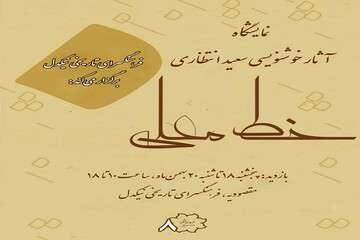 نمایشگاه
آثار خوشنویسی سعید انتظاری
فرهنگسرای تاریخی نیکدل
برگزار می‌کند:
خط معلی
بازدید: پنجشنبه ۱۸ تا شنبه ۲۰ بهمن ماه، ساعت ۱۰ تا ۱۸
مقصودیه، فرهنگسرای تاریخی نیکدل
۸